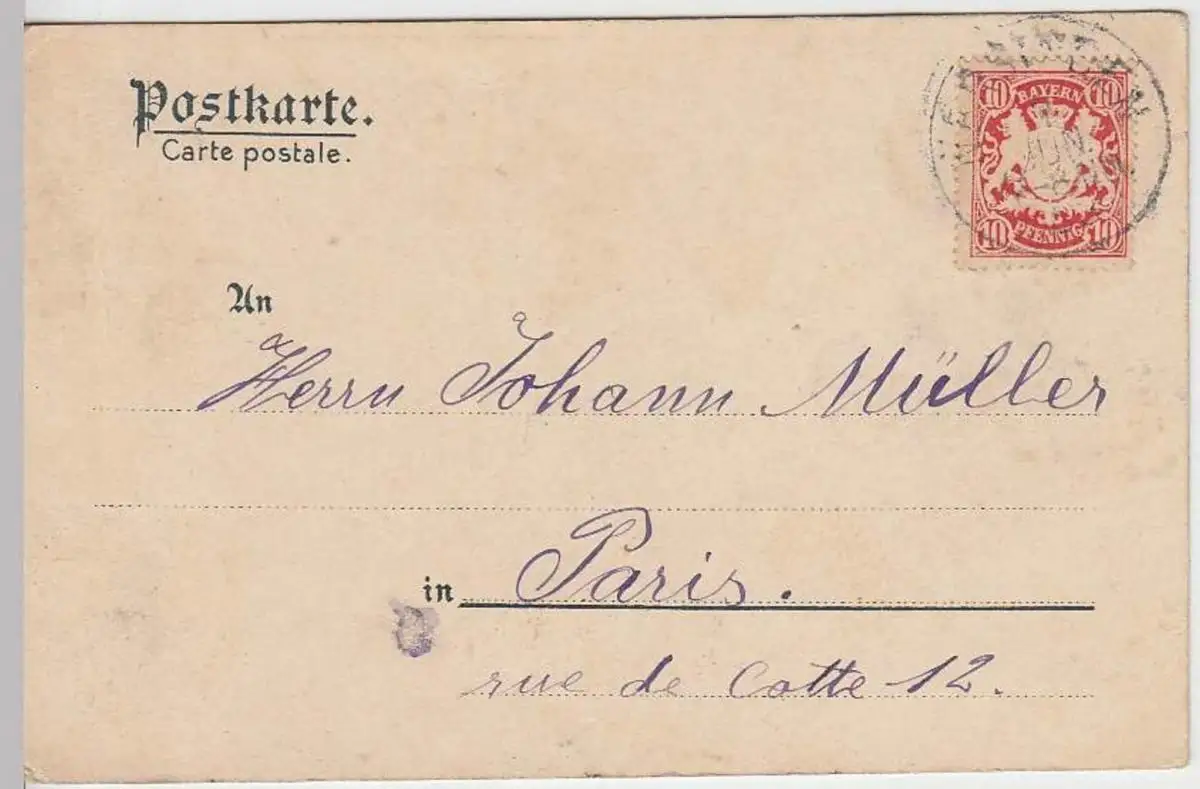 Postkarte.
Carte postale.
10 BAYERN 10
JUN.
10 PFENNIG 10
An
Herrn Johann Müller
in Paris.
rue de Cotte 12.